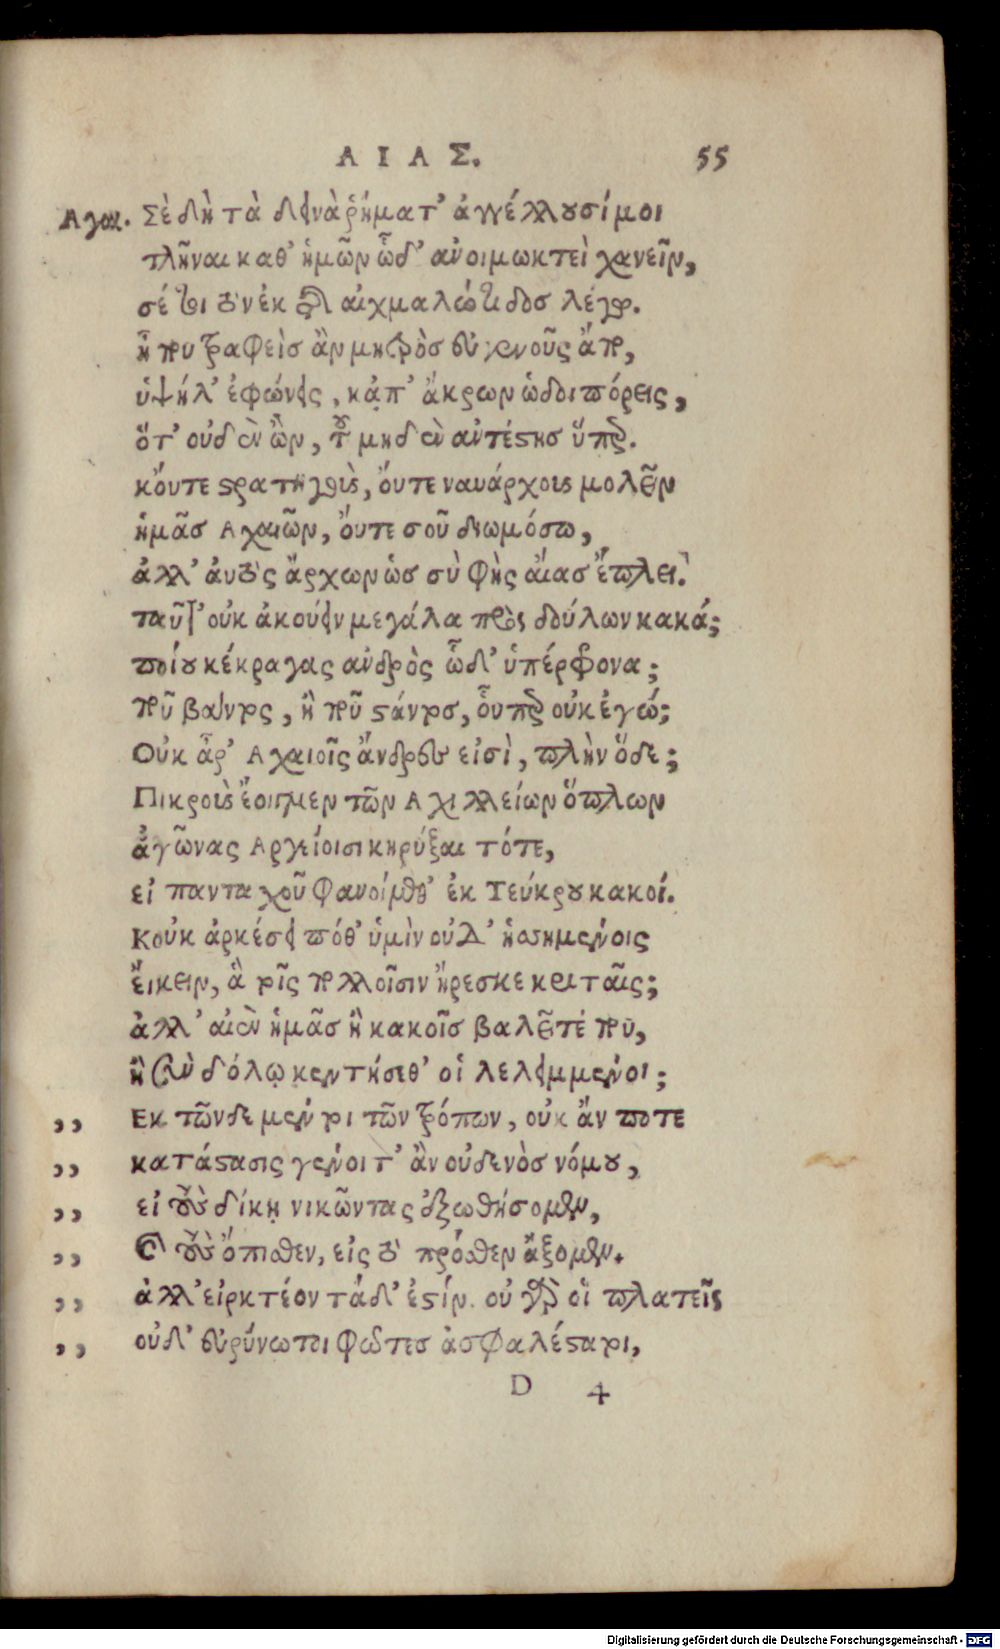 ΑΙΑΣ. 55
Αγαμ. Σὲ δὴ τὰ δεινὰ ῥήματ' ἀγγέλλουσί μοι
τλῆναι καθ' ἡμῶν ὧδ' ἀνοιμωκτεὶ χανεῖν,
σέ τοι τὸν ἐκ τῆς αἰχμαλώτιδος λέγω.
ἦ που τραφεὶς ἂν μητρὸς εὐγενοῦς ἄπο,
ὑψήλ' ἐφώνεις, κἀπ' ἄκρων ὡδοιπόρεις,
ὅτ' οὐδὲν ὢν, τοῦ μηδὲν ἀντέστης ὕπερ.
κοὔτε στρατηγοὺς, οὔτε ναυάρχους μολεῖν
ἡμᾶς Αχαιῶν, οὔτε σοῦ διωμόσω,
ἀλλ' αὐτὸς ἄρχων ὡς σὺ φὴς αἴας ἔπλει.
ταῦτ' οὐκ ἀκούειν μεγάλα πρὸς δούλων κακά;
ποίου κέκραγας ἀνδρὸς ὧδ' ὑπέρφρονα;
ποῦ βάντος, ἢ ποῦ στάντος, οὗπερ οὐκ ἐγώ;
Οὐκ ἆρ' Αχαιοῖς ἄνδρες εἰσὶ, πλὴν ὅδε;
Πικροὺς ἔοιγμεν τῶν Αχιλλείων ὅπλων
ἀγῶνας Αργείοισι κηρύξαι τότε,
εἰ πανταχοῦ φανοίμεθ' ἐκ Τεύκρου κακοί.
Κοὐκ ἀρκέσει πόθ' ὑμὶν οὐδ' ἡσσημένοις
εἴκειν, ἃ τοῖς πολλοῖσιν ἤρεσκε κριταῖς;
ἀλλ' αἰὲν ἡμᾶς ἢ κακοῖς βαλεῖτέ που,
ἢ σὺν δόλῳ κεντήσεθ' οἱ λελειμμένοι;
,, Εκ τῶνδε μέν τοι τῶν τρόπων, οὐκ ἄν ποτε
,, κατάστασις γένοιτ' ἂν οὐδενὸς νόμου,
,, εἰ τοὺς δίκῃ νικῶντας ἐξωθήσομεν,
,, καὶ τοὺς ὄπισθεν, εἰς τὸ πρόσθεν ἄξομεν.
,, ἀλλ' εἰρκτέον τάδ' ἐστίν. οὐ γὰρ οἱ πλατεῖς
,, οὐδ' εὐρύνωτοι φῶτες ἀσφαλέστατοι,
D 4
Digitalisierung gefördert durch die Deutsche Forschungsgemeinschaft - DFG